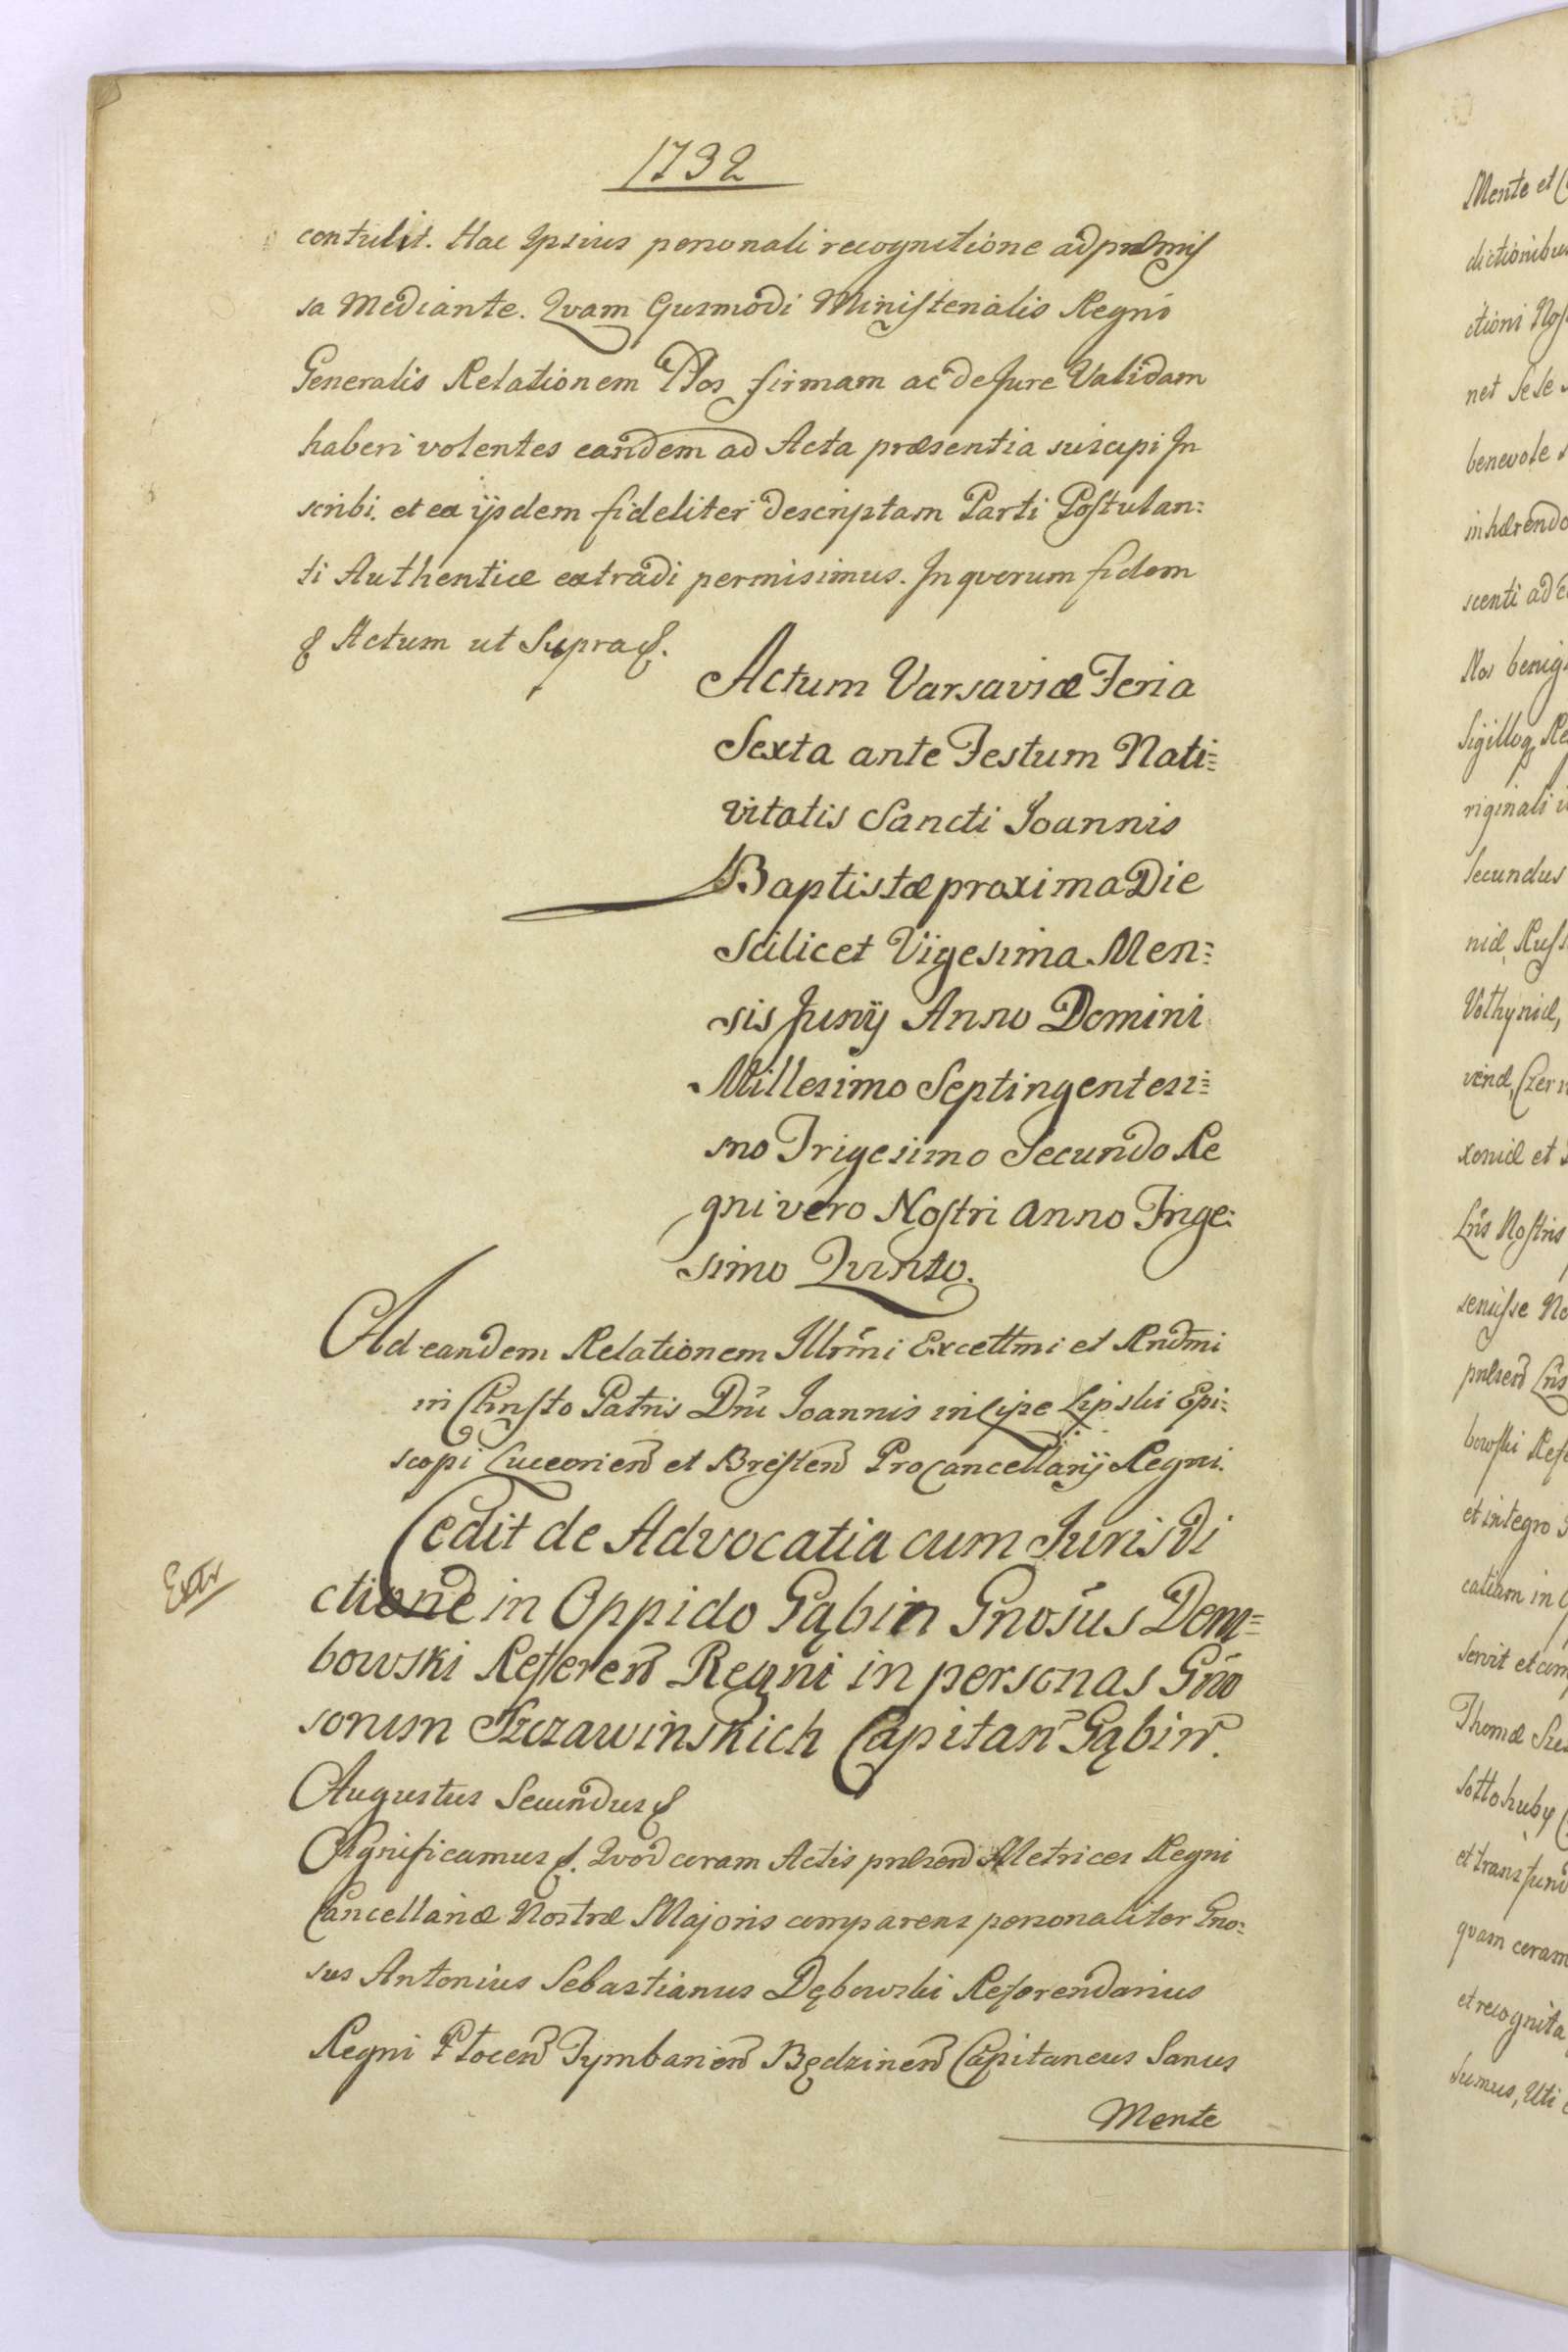 1732
contulit. Hac Ipsius personali recognitione ad præmis
sa Mediante. Qvam Eiusmodi Ministerialis Regni
Generalis Relationem Nos firmam ac de Jure Validam
haberi volentes eandem ad Acta præsentia suscipi In
scribi. et ex ijsdem fideliter descriptam Parti Postulan:
ti Authentice extradi permisimus. In qvorum fidem
& Actum ut Supra &.
Actum Varsaviæ Feria
Sexta ante Festum Nati:
vitatis Sancti Joannis
Baptistæ proxima Die
Scilicet Vigesima Men:
sis Junij Anno Domini
Millesimo Septingentesi:
mo Trigesimo Secundo Re
gni vero Nostri Anno Trige:
simo Qvinto.
Ad eandem Relationem Illrmi Excellmi et Rndmi
in Christo Patris Dni Joannis in Lipe Lipski Epi:
scopi Luceorien et Bresten Procancellarij Regni.
Cedit de Advocatia cum Jurisdi
ctione in Oppido Gąbin Gnosus Dem=
bowski Referen Regni in personas Gno
sorum Szczawinskich Capitan Gąbin.
Extr
Augustus Secundus &
Significamus &. Qvod coram Actis præsen Metrices Regni
Cancellariæ Nostræ Majoris comparens personaliter Gno:
sus Antonius Sebastianus Dębowski Referendarius
Regni Płocen Tymbarien Będzinen Capitaneus Sanus
Mente
Mente et
dictionibus
ctioni
net sese
benevole
inhærendo
scenti ad
Nos benig
Sigilloq Re
riginali
Secundus
niæ, Russ
Volhyniæ,
viæ, Czer
xoniæ et
Lris Nostris
senusse
præsen Lris
bowski Refe
et integro
catiam in
servit et
Thomæ
Sottohuby
et transfund
qvam coram
et recognita
sumus, Uti